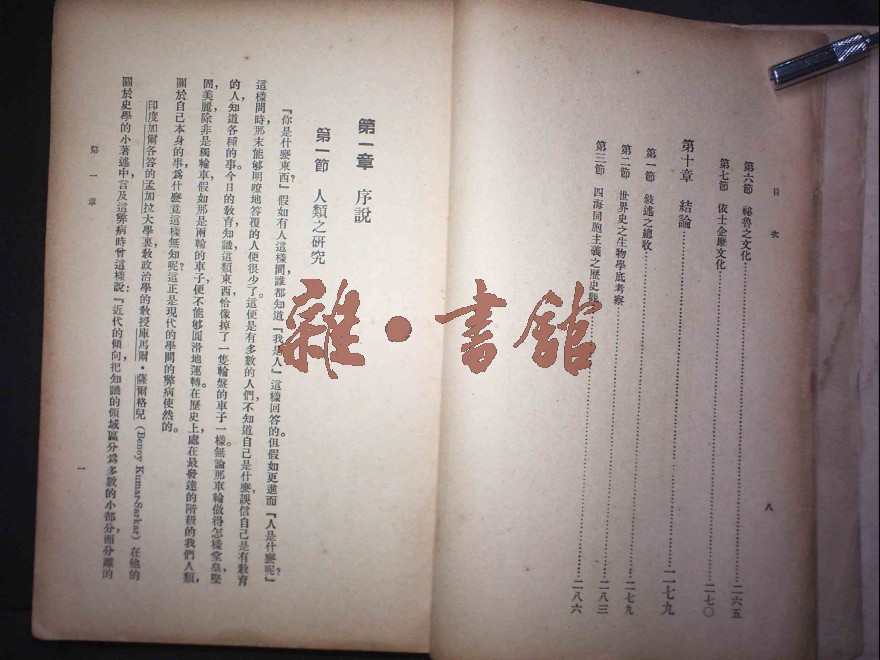 目次
第六節 祕魯之文化 二六五
第七節 依士企摩文化 二七〇
第十章 結論 二七九
第一節 敍述之總收 二七九
第二節 世界史之生物學底考察 二八三
第三節 四海同胞主義之歷史觀 二八六
八
第一章 序說
第一節 人類之研究
『你是什麼東西?』假如有人這樣問,誰都知道『我是人』這樣回答的。但假如更進而『人是什麼呢?』
這樣問時,那末能够明瞭地答覆的人便很少了。這便是有多數的人們,不知道自己是什麼,誤信自己是有敎育
的人,知道各種的事。今日的敎育知識,這類東西恰像掉了一隻輪盤的車子一樣。無論那車輪做得怎樣堂皇堅
固美麗,除非是獨輪車,假如那是兩輪的車子,便不能够圓滑地運轉。在歷史上處在最發達的階級的我們人類,
關於自己本身的事,爲什麼竟這樣無知呢?這正是現代的學問的弊病使然的。
印度加爾各答的孟加拉大學裏敎政治學的敎授庫馬爾·薩爾格兒(Benoy Kumar Sarkar)在他的
關於史學的小著述中,言及這弊病時曾這樣說:『近代的傾向,把知識的領域區分爲多數的小部分,而分離的
第一章
一
雜·書館